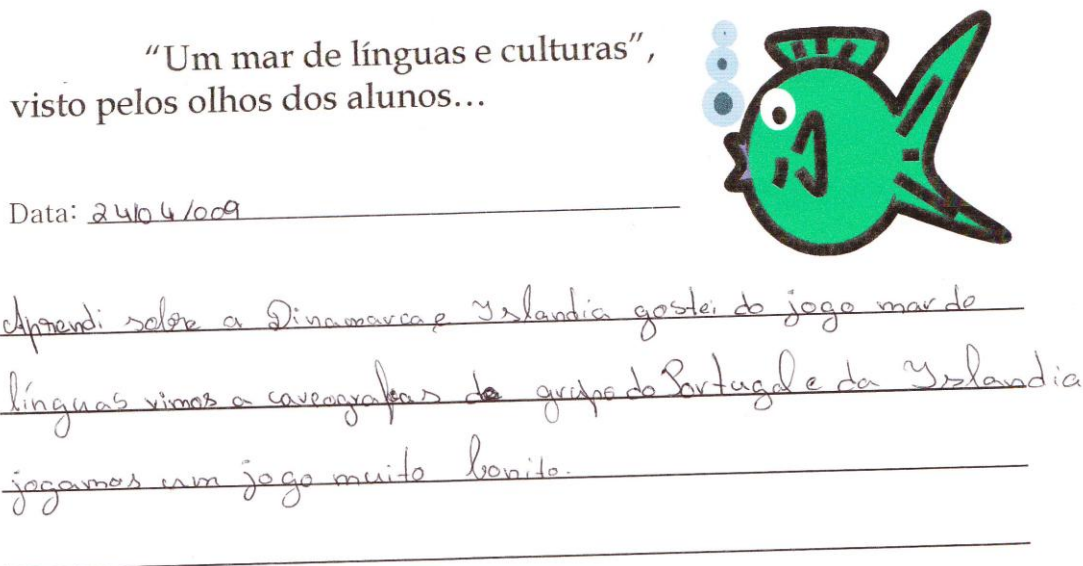 "Um mar de línguas e culturas",
visto pelos olhos dos alunos...
Data: 24/04/009
Aprendi sobre a Dinamarca e Islandia gostei do jogo mar de
línguas vimos a caveografas do grupo do Portugal e da Islandia
jogamos um jogo muito bonito.